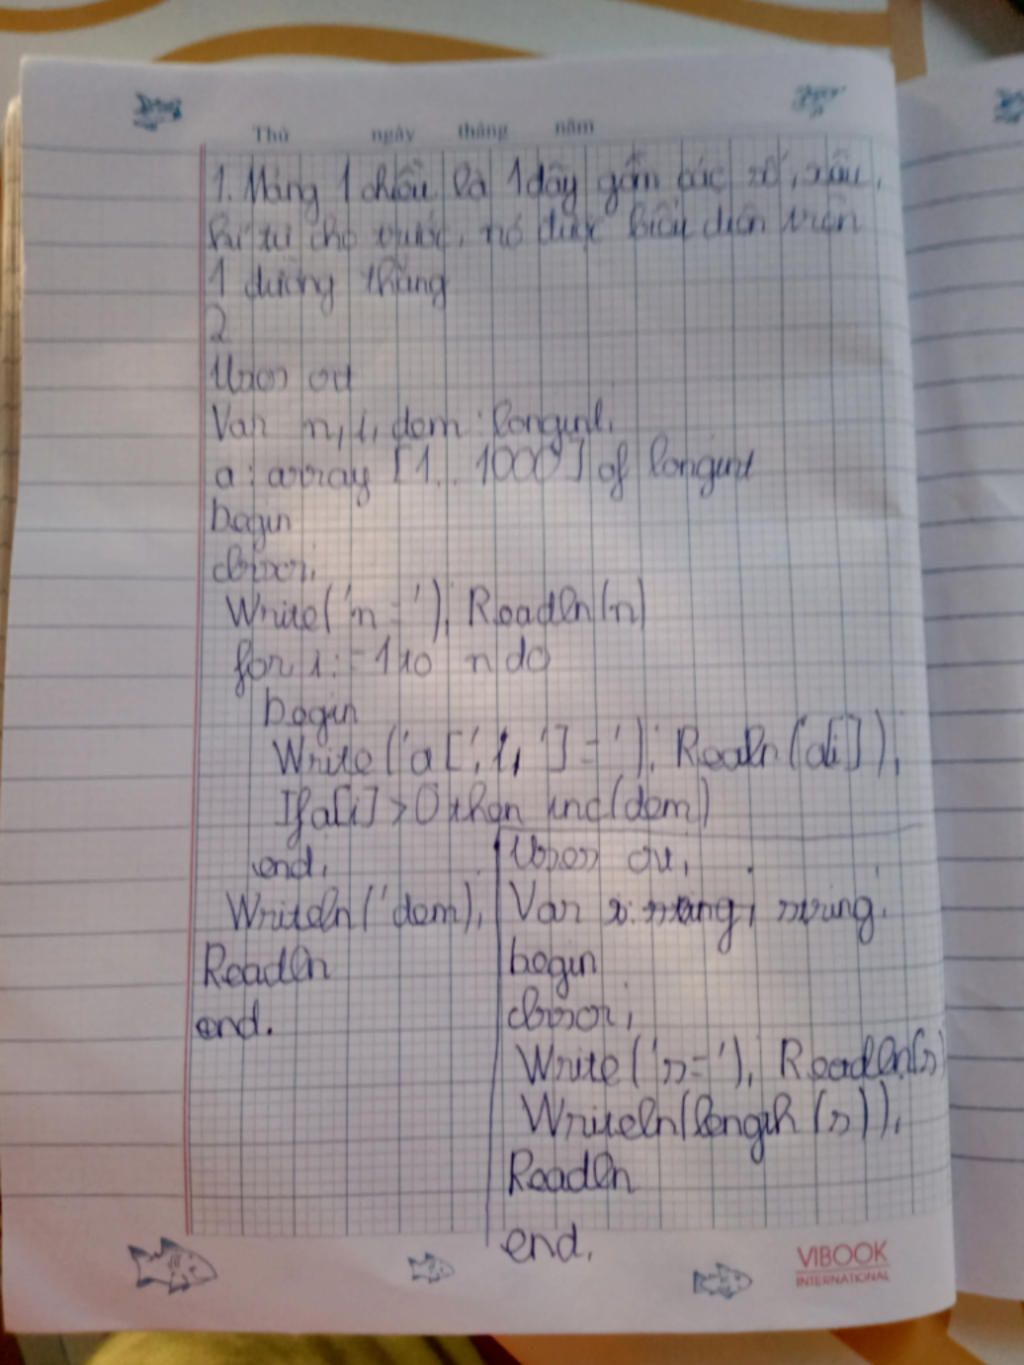 Thứ ngày tháng năm
1. Mảng 1 chiều là 1 dãy gồm các số, xâu,
kí tự cho trước, nó được biểu diễn trên
1 đường thẳng
2
Uses crt
Var n, i, dem : longint;
a : array [1..1000] of longint
begin
clrscr;
Write('n = '); Readln(n)
for i:=1 to n do
begin
Write('a[',i,']='); Realn(a[i]);
If a[i]>0 then inc(dem)
end;
Writeln('dem);
Readln
end.
Uses crt;
Var s: string;
begin
clrscr;
Write('s='); Readln(s)
Writeln(length(s));
Readln
end.
VIBOOK
INTERNATIONAL